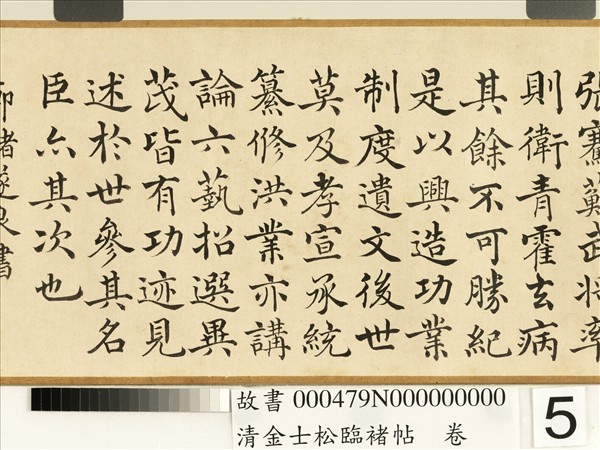 張騫蘇武将率
則衛青霍去病
其餘不可勝紀
是以興造功業
制度遺文後世
莫及孝宣承統
纂修洪業亦講
論六藝招選異
茂皆有功迹見
述於世參其名
臣亦其次也
褚遂良書
故書 000479N000000000
清金士松臨褚帖 卷
5